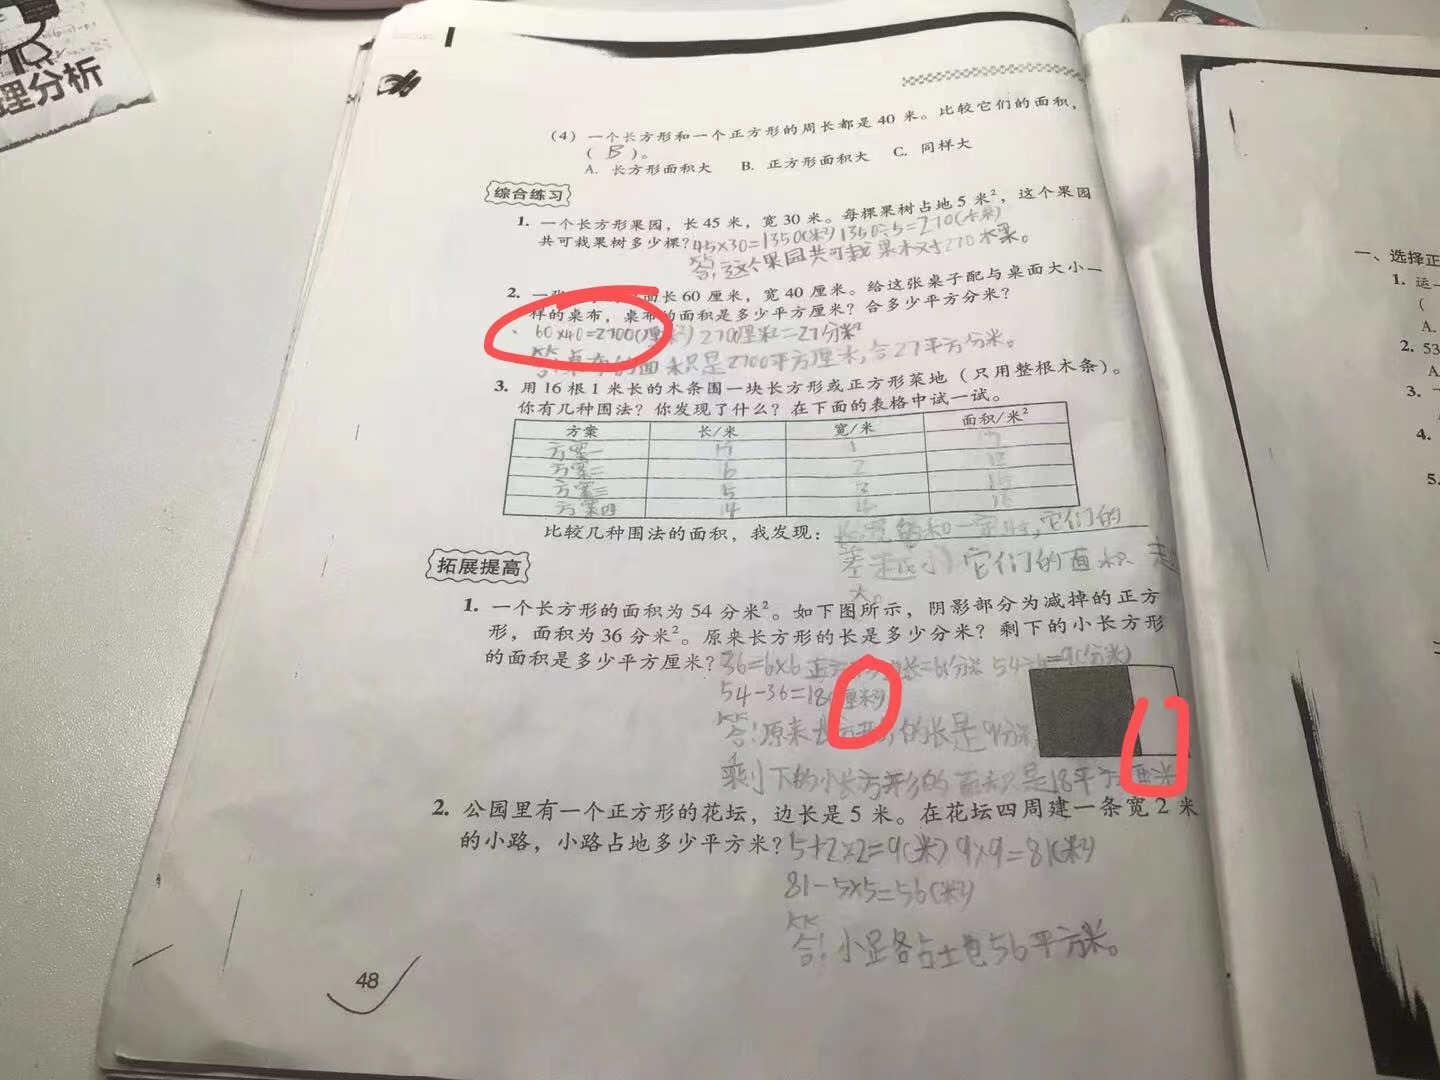 理分析
(4) 一个长方形和一个正方形的周长都是 40 米。比较它们的面积，
( B )。
A. 长方形面积大 B. 正方形面积大 C. 同样大
综合练习
1. 一个长方形果园，长 45 米，宽 30 米。每棵果树占地 5 米²，这个果园
共可栽果树多少棵？45×30=1350(米²) 1350÷5=270(木果)
答:这个果园共可栽果木对270木果。
2. 一张 面长 60 厘米，宽 40 厘米。给这张桌子配与桌面大小一
样的桌布，桌布的面积是多少平方厘米？合多少平方分米？
60×40=2700(厘米²) 270厘米²=27分米²
答:桌布的面积只是2700平方厘米,合27平方分米。
3. 用 16 根 1 米长的木条围一块长方形或正方形菜地（只用整根木条）。
你有几种围法？你发现了什么？在下面的表格中试一试。
方案 长/米 宽/米 面积/米²
方案一 1
方案二 2
方案三 5 3 15
方案四 4
比较几种围法的面积，我发现：长宽的和一定时,它们的
差越小 它们的面积 越
大。
拓展提高
1. 一个长方形的面积为 54 分米²。如下图所示，阴影部分为减掉的正方
形，面积为 36 分米²。原来长方形的长是多少分米？剩下的小长方形
的面积是多少平方厘米？36=6×6 长=6分米 54÷6=9(分米)
54-36=18(厘米²)
答:原来长方形的长是9分米
剩下的小长方形的面积只是18平方厘米
2. 公园里有一个正方形的花坛，边长是 5 米。在花坛四周建一条宽 2 米
的小路，小路占地多少平方米？5+2×2=9(米) 9×9=81(米²)
81-5×5=56(米²)
答:小足各占土也56平方米。
48
一、选择正
1. 运一
(
A.
2. 53
A
3.
4.
5.